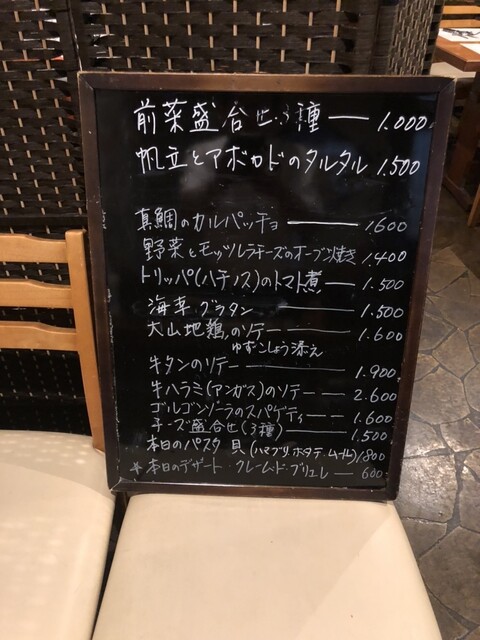 前菜盛合せ・3種 ― 1.000
帆立とアボカドのタルタル 1.500
真鯛のカルパッチョ ― 1.600
野菜とモッツレラチーズのオーブン焼き 1.400
トリッパ(ハチノス)のトマト煮 ― 1.500
海草グラタン ― 1.500
大山地鶏のソテー ― 1.600
ゆずこしょう添え
牛タンのソテー ― 1.900
牛ハラミ(アンガス)のソテー ― 2.600
ゴルゴンゾーラのスパゲティ ― 1.600
チーズ盛合せ(3種) ― 1.500
本日のパスタ 貝(ハマグリ.ホタテ.ムール) 1.800
★本日のデザート クレームド・ブリュレ ― 600